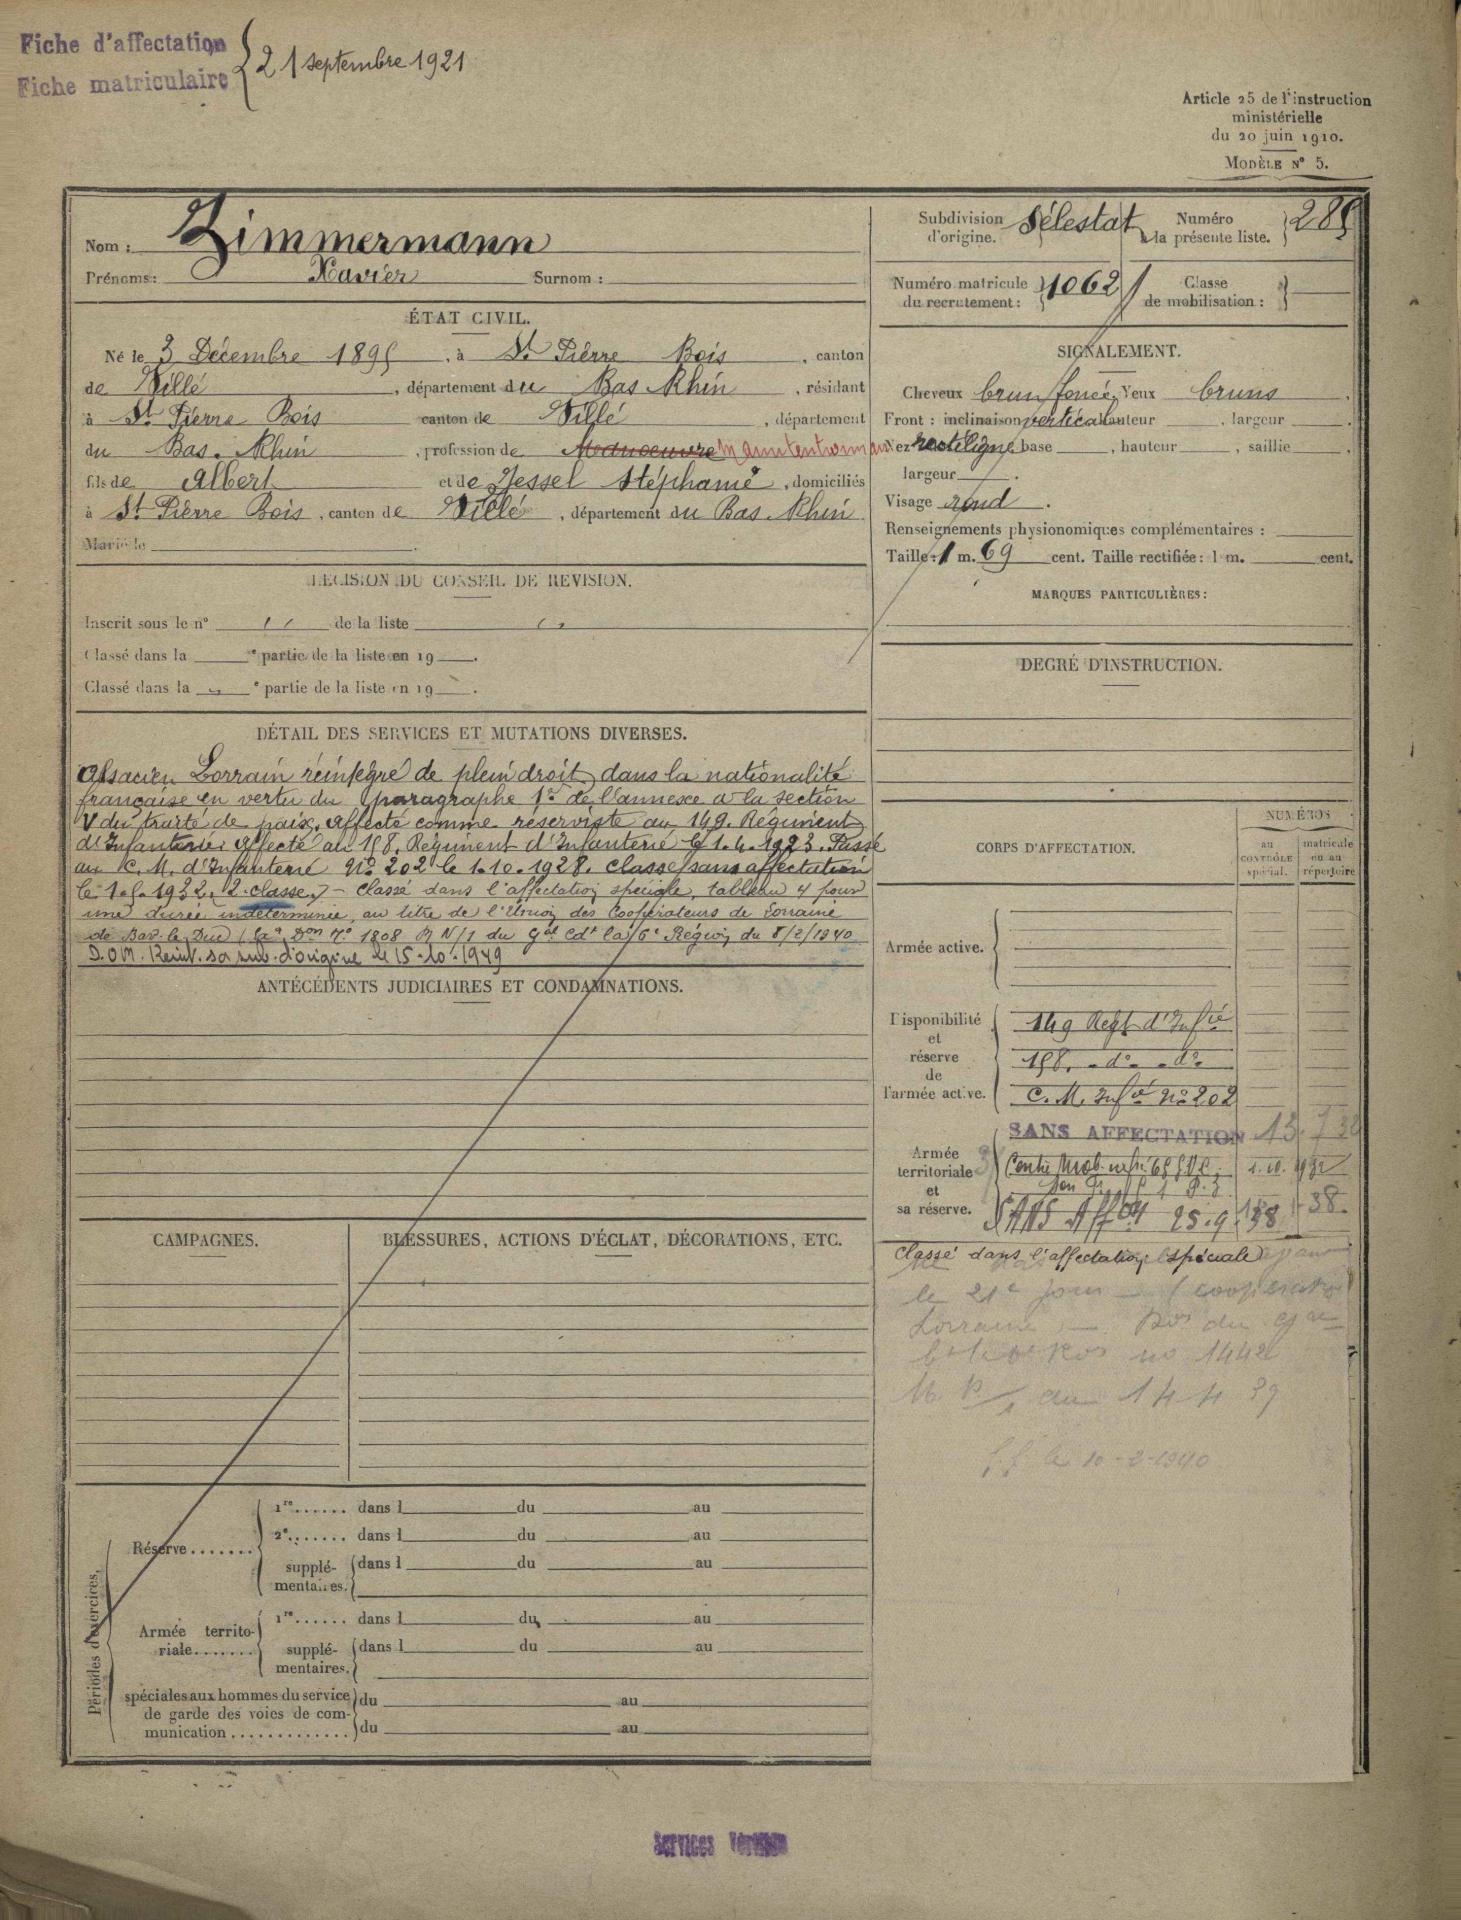 Fiche d'affectation
Fiche matriculaire
21 septembre 1921
Article 25 de l'instruction
ministérielle
du 20 juin 1910.
MODÈLE N° 5.
Nom : Zimmermann
Prénoms : Xavier Surnom :
Subdivision d'origine. Sélestat
Numéro à la présente liste. 285
Numéro matricule du recrutement : 1062
Classe de mobilisation :
ÉTAT CIVIL.
Né le 3 Décembre 1895, à St Pierre Bois, canton
de Villé, département du Bas Rhin, résidant
à St Pierre Bois canton de Villé, département
du Bas-Rhin, profession de Manoeuvre
fils de Albert et de Jessel Stéphanie, domiciliés
à St Pierre Bois, canton de Villé, département du Bas-Rhin
Marié le
SIGNALEMENT.
Cheveux brun foncé, Yeux bruns
Front : inclinaison vertical hauteur , largeur .
Nez rectiligne base , hauteur , saillie ,
largeur .
Visage rond .
Renseignements physionomiques complémentaires :
Taille : 1 m. 69 cent. Taille rectifiée : 1 m. cent.
MARQUES PARTICULIÈRES :
DÉCISION DU CONSEIL DE REVISION.
Inscrit sous le n° " de la liste "
Classé dans la e partie de la liste en 19 .
Classé dans la " e partie de la liste en 19 .
DEGRÉ D'INSTRUCTION.
DÉTAIL DES SERVICES ET MUTATIONS DIVERSES.
Alsacien Lorrain réintégré de plein droit dans la nationalité
française en vertu du paragraphe 1er de l'annexe à la section
V du traité de paix. Affecté comme réserviste au 149. Régiment
d'Infanterie. Affecté au 158. Régiment d'Infanterie le 1.4.1923. Passé
au C. M. d'Infanterie N° 202 le 1.10.1928. Classé sans affectation
le 1.5.1932. 2. classe. - Classé dans l'affectation spéciale, tableau 4 pour
une durée indéterminée, au titre de l'Union des Coopérateurs de Lorraine
de Bar-le-Duc Don N° 1808 R N/1 du Gal Cdt la 6e Région du 8/2/1940
D.O.M. Reint. sa sub. d'origine le 15-10-1949
ANTÉCÉDENTS JUDICIAIRES ET CONDAMNATIONS.
CORPS D'AFFECTATION.
NUMÉROS
au CONTRÔLE spécial.
matricule ou au répertoire
Armée active.
Disponibilité et réserve de l'armée active.
149 Regt d'Infie
158. - do - do
C. M. Infie N° 202
Armée territoriale et sa réserve.
SANS AFFECTATION 13.
Centre Mob. 1.10. 1932
SANS Affon 25.9.38
Classé dans l'affectation spéciale
le 21e jour
Lorraine
no 1442
du 14 4 39
le 10-2-1940
CAMPAGNES.
BLESSURES, ACTIONS D'ÉCLAT, DÉCORATIONS, ETC.
Périodes d'exercices.
Réserve.......
1re...... dans l du au
2e....... dans l du au
supplémentaires. dans l du au
Armée territoriale.......
1re...... dans l du au
supplémentaires. dans l du au
spéciales aux hommes du service du au
de garde des voies de com-
munication ............. du au
Services Vérifiés